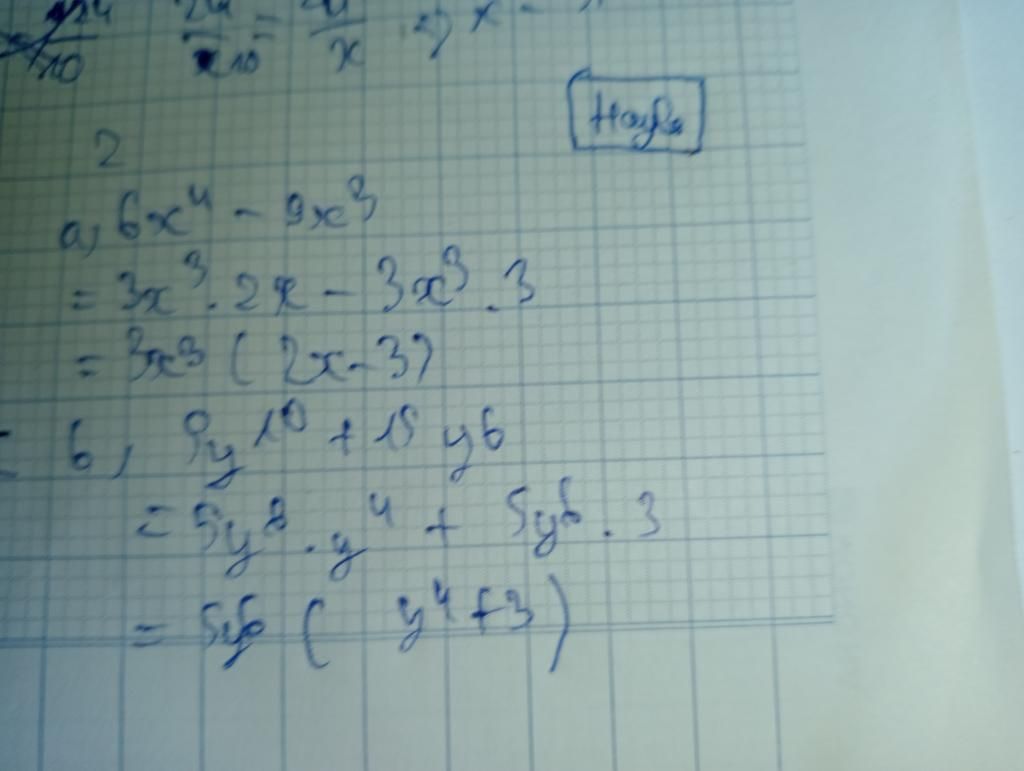 24/10 24/x10 = 24/x => x =
Науки
2
a, 6x⁴ - 9x³
= 3x³ . 2x - 3x³ . 3
= 3x³ ( 2x - 3)
b, 5y¹⁰ + 15 y⁶
= 5y⁶ . y⁴ + 5y⁶ . 3
= 5y⁶ ( y⁴ + 3 )